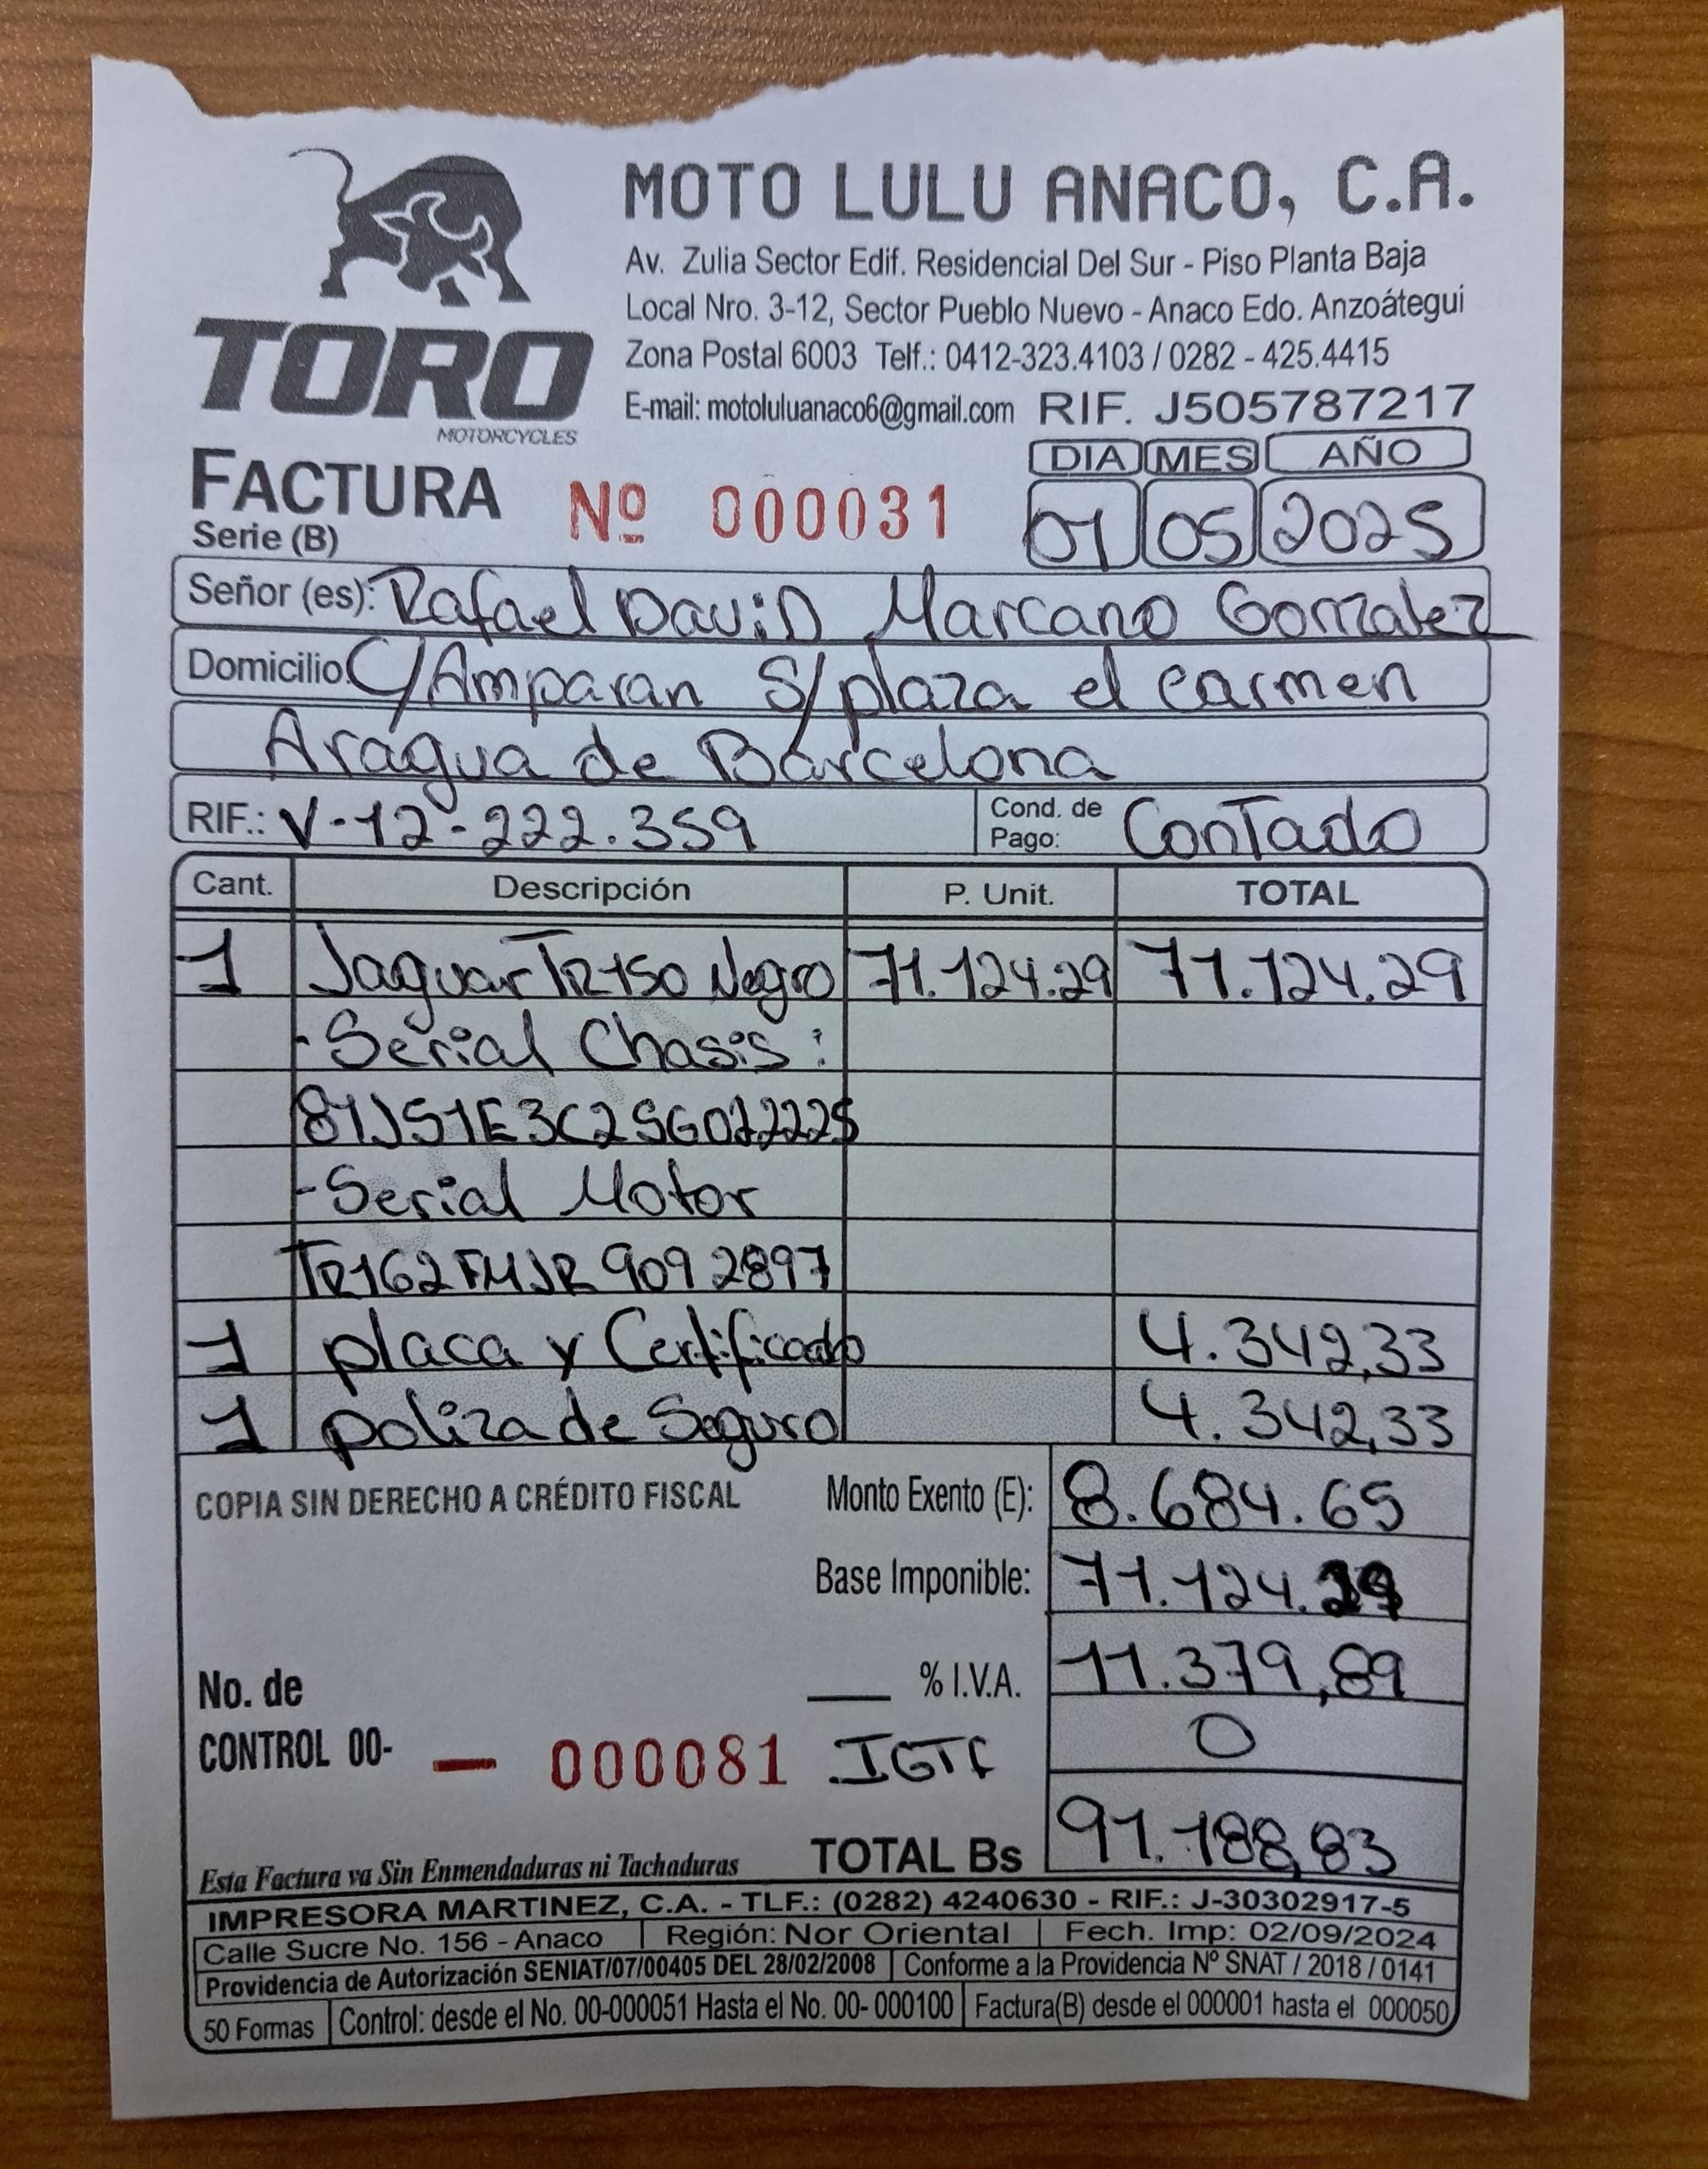 TORO
MOTORCYCLES
MOTO LULU ANACO, C.A.
Av. Zulia Sector Edif. Residencial Del Sur - Piso Planta Baja
Local Nro. 3-12, Sector Pueblo Nuevo - Anaco Edo. Anzoátegui
Zona Postal 6003 Telf.: 0412-323.4103 / 0282 - 425.4415
E-mail: motoluluanaco6@gmail.com RIF. J505787217
DIA MES AÑO
FACTURA Nº 000031 01 05 2025
Serie (B)
Señor (es): Rafael DaviD Marcano Gonzalez
Domicilio: C/Amparan S/plaza el carmen
Aragua de Barcelona
RIF.: V-12-222.359 Cond. de Pago: ConTado
Cant. Descripción P. Unit. TOTAL
1 Jaguar TR150 Negro 71.124.29 71.124.29
-Serial Chasis:
-Serial Motor
TR162FMJR9092897
1 placa y Certificado 4.342,33
1 poliza de Seguro 4.342,33
COPIA SIN DERECHO A CRÉDITO FISCAL Monto Exento (E): 8.684.65
Base Imponible: 71.124.29
No. de ___ % I.V.A. 11.379,89
CONTROL 00- — 000081 IGTF 0
Esta Factura va Sin Enmendaduras ni Tachaduras TOTAL Bs 91.188,83
IMPRESORA MARTINEZ, C.A. - TLF.: (0282) 4240630 - RIF.: J-30302917-5
Calle Sucre No. 156 - Anaco Región: Nor Oriental Fech. Imp: 02/09/2024
Providencia de Autorización SENIAT/07/00405 DEL 28/02/2008 Conforme a la Providencia Nº SNAT / 2018 / 0141
50 Formas Control: desde el No. 00-000051 Hasta el No. 00- 000100 Factura(B) desde el 000001 hasta el 000050